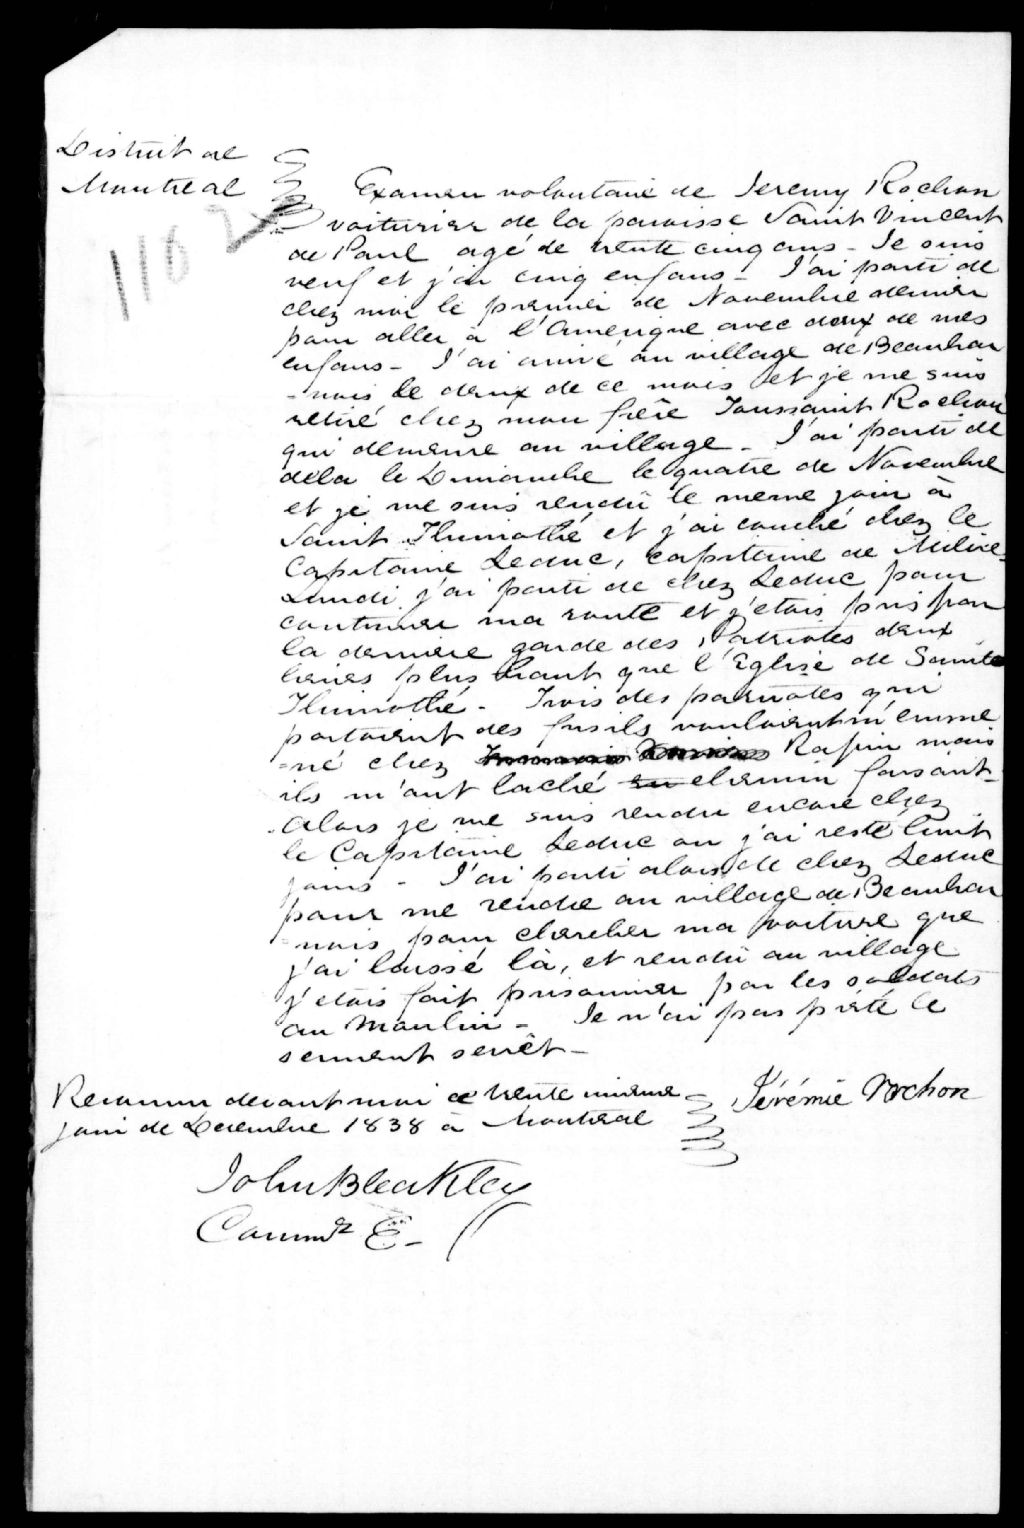 District de
Montreal
1162
Examen volontaire de Jeremy Rochon
voiturier de la paroisse Saint Vincent
de Paul agé de trente cinq ans - Je suis
veuf et j'ai cinq enfans - J'ai parti de
chez moi le premier de Novembre dernier
pour aller à l'Amerique avec deux de mes
enfans - J'ai arrivé au village de Beauhar
-nois le deux de ce mois et je me suis
retiré chez mon frère Toussaint Rochon
qui demeure au village - J'ai parti de
dela le Dimanche le quatre de Novembre
et je me suis rendu le meme jour à
Saint Thimothé et j'ai couché chez le
Capitaine Leduc, capitaine de Milice
Lundi j'ai parti de chez Leduc pour
continuer ma route et j'etois pris par
la derniere garde des Patriotes deux
lieues plus haut que l'Eglise de Sainte
Thimothé - Trois des patriotes qui
portoient des fusils vouloient m'emme
-né chez Rapin mais
ils m'ont laché en chemin faisant -
Alors je me suis rendu encore chez
le Capitaine Leduc ou j'ai resté huit
jours - J'ai parti alors de chez Leduc
pour me rendre au village de Beauhar
-nois pour chercher ma voiture que
j'ai laissé là, et rendu au village
j'etois fait prisonnier par les soldats
au Moulin - Je n'ai pas prété le
serment secrêt -
Reconnu devant moi ce trente unieme
jour de Decembre 1838 à Montreal
Jérémie Rochon
John Bleakley
Commr E -